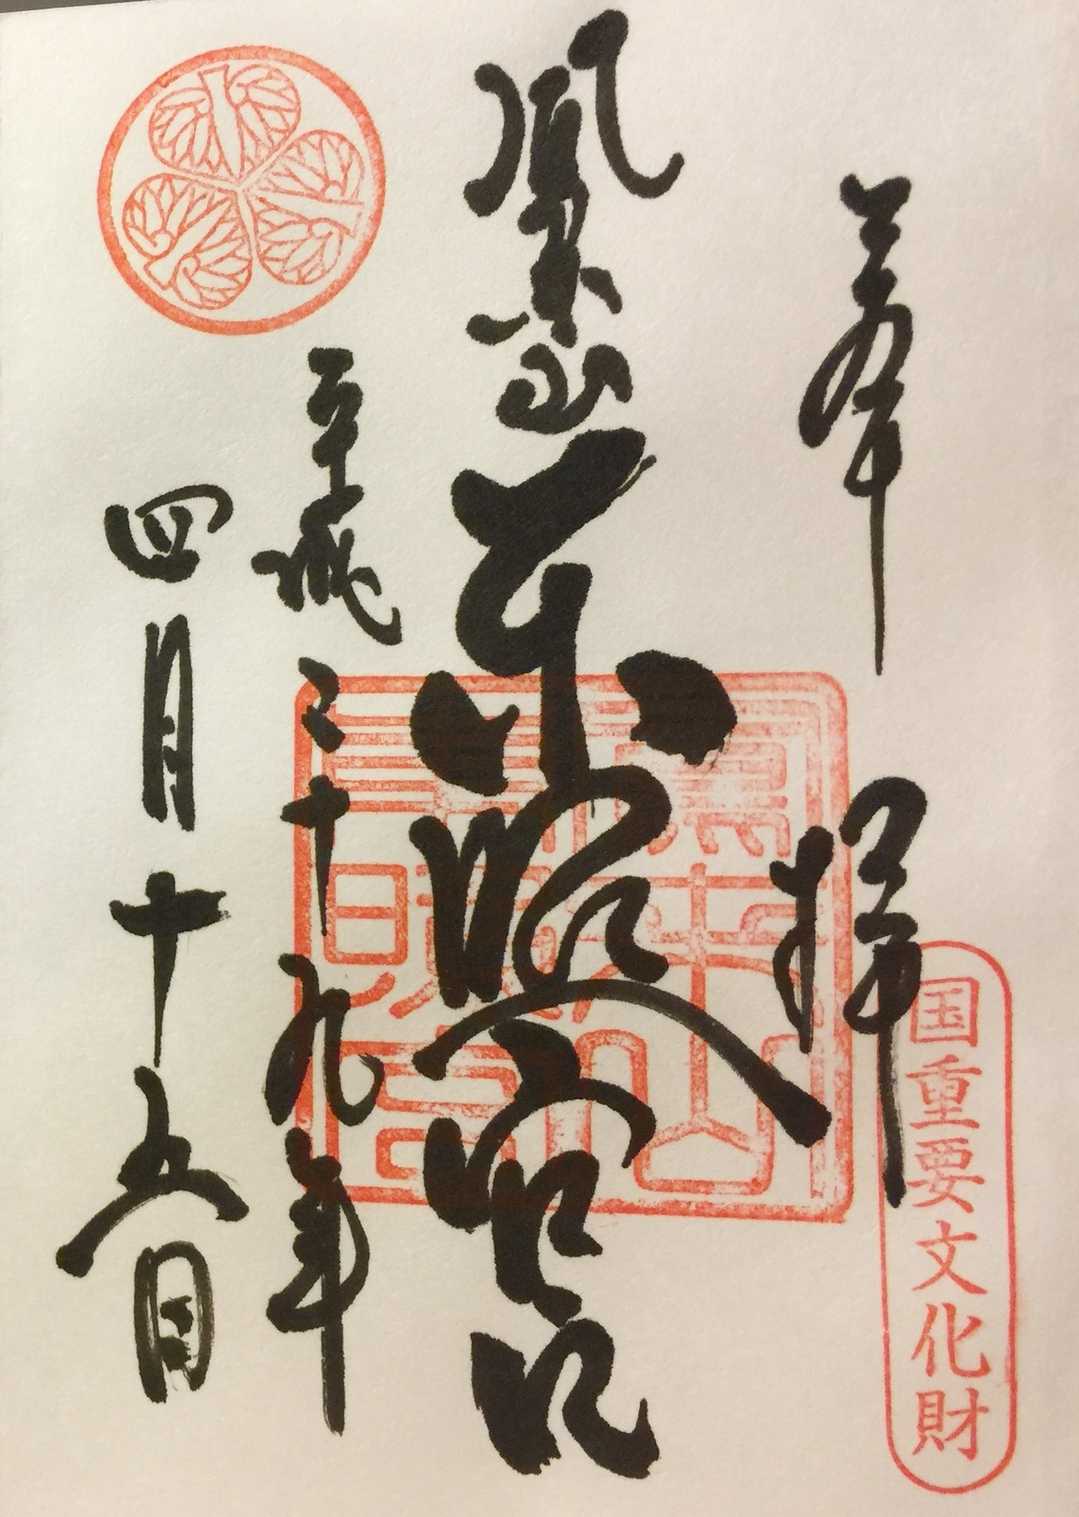 奉拝
国重要文化財
鳳来山東照宮
平成二十九年
四月十五日